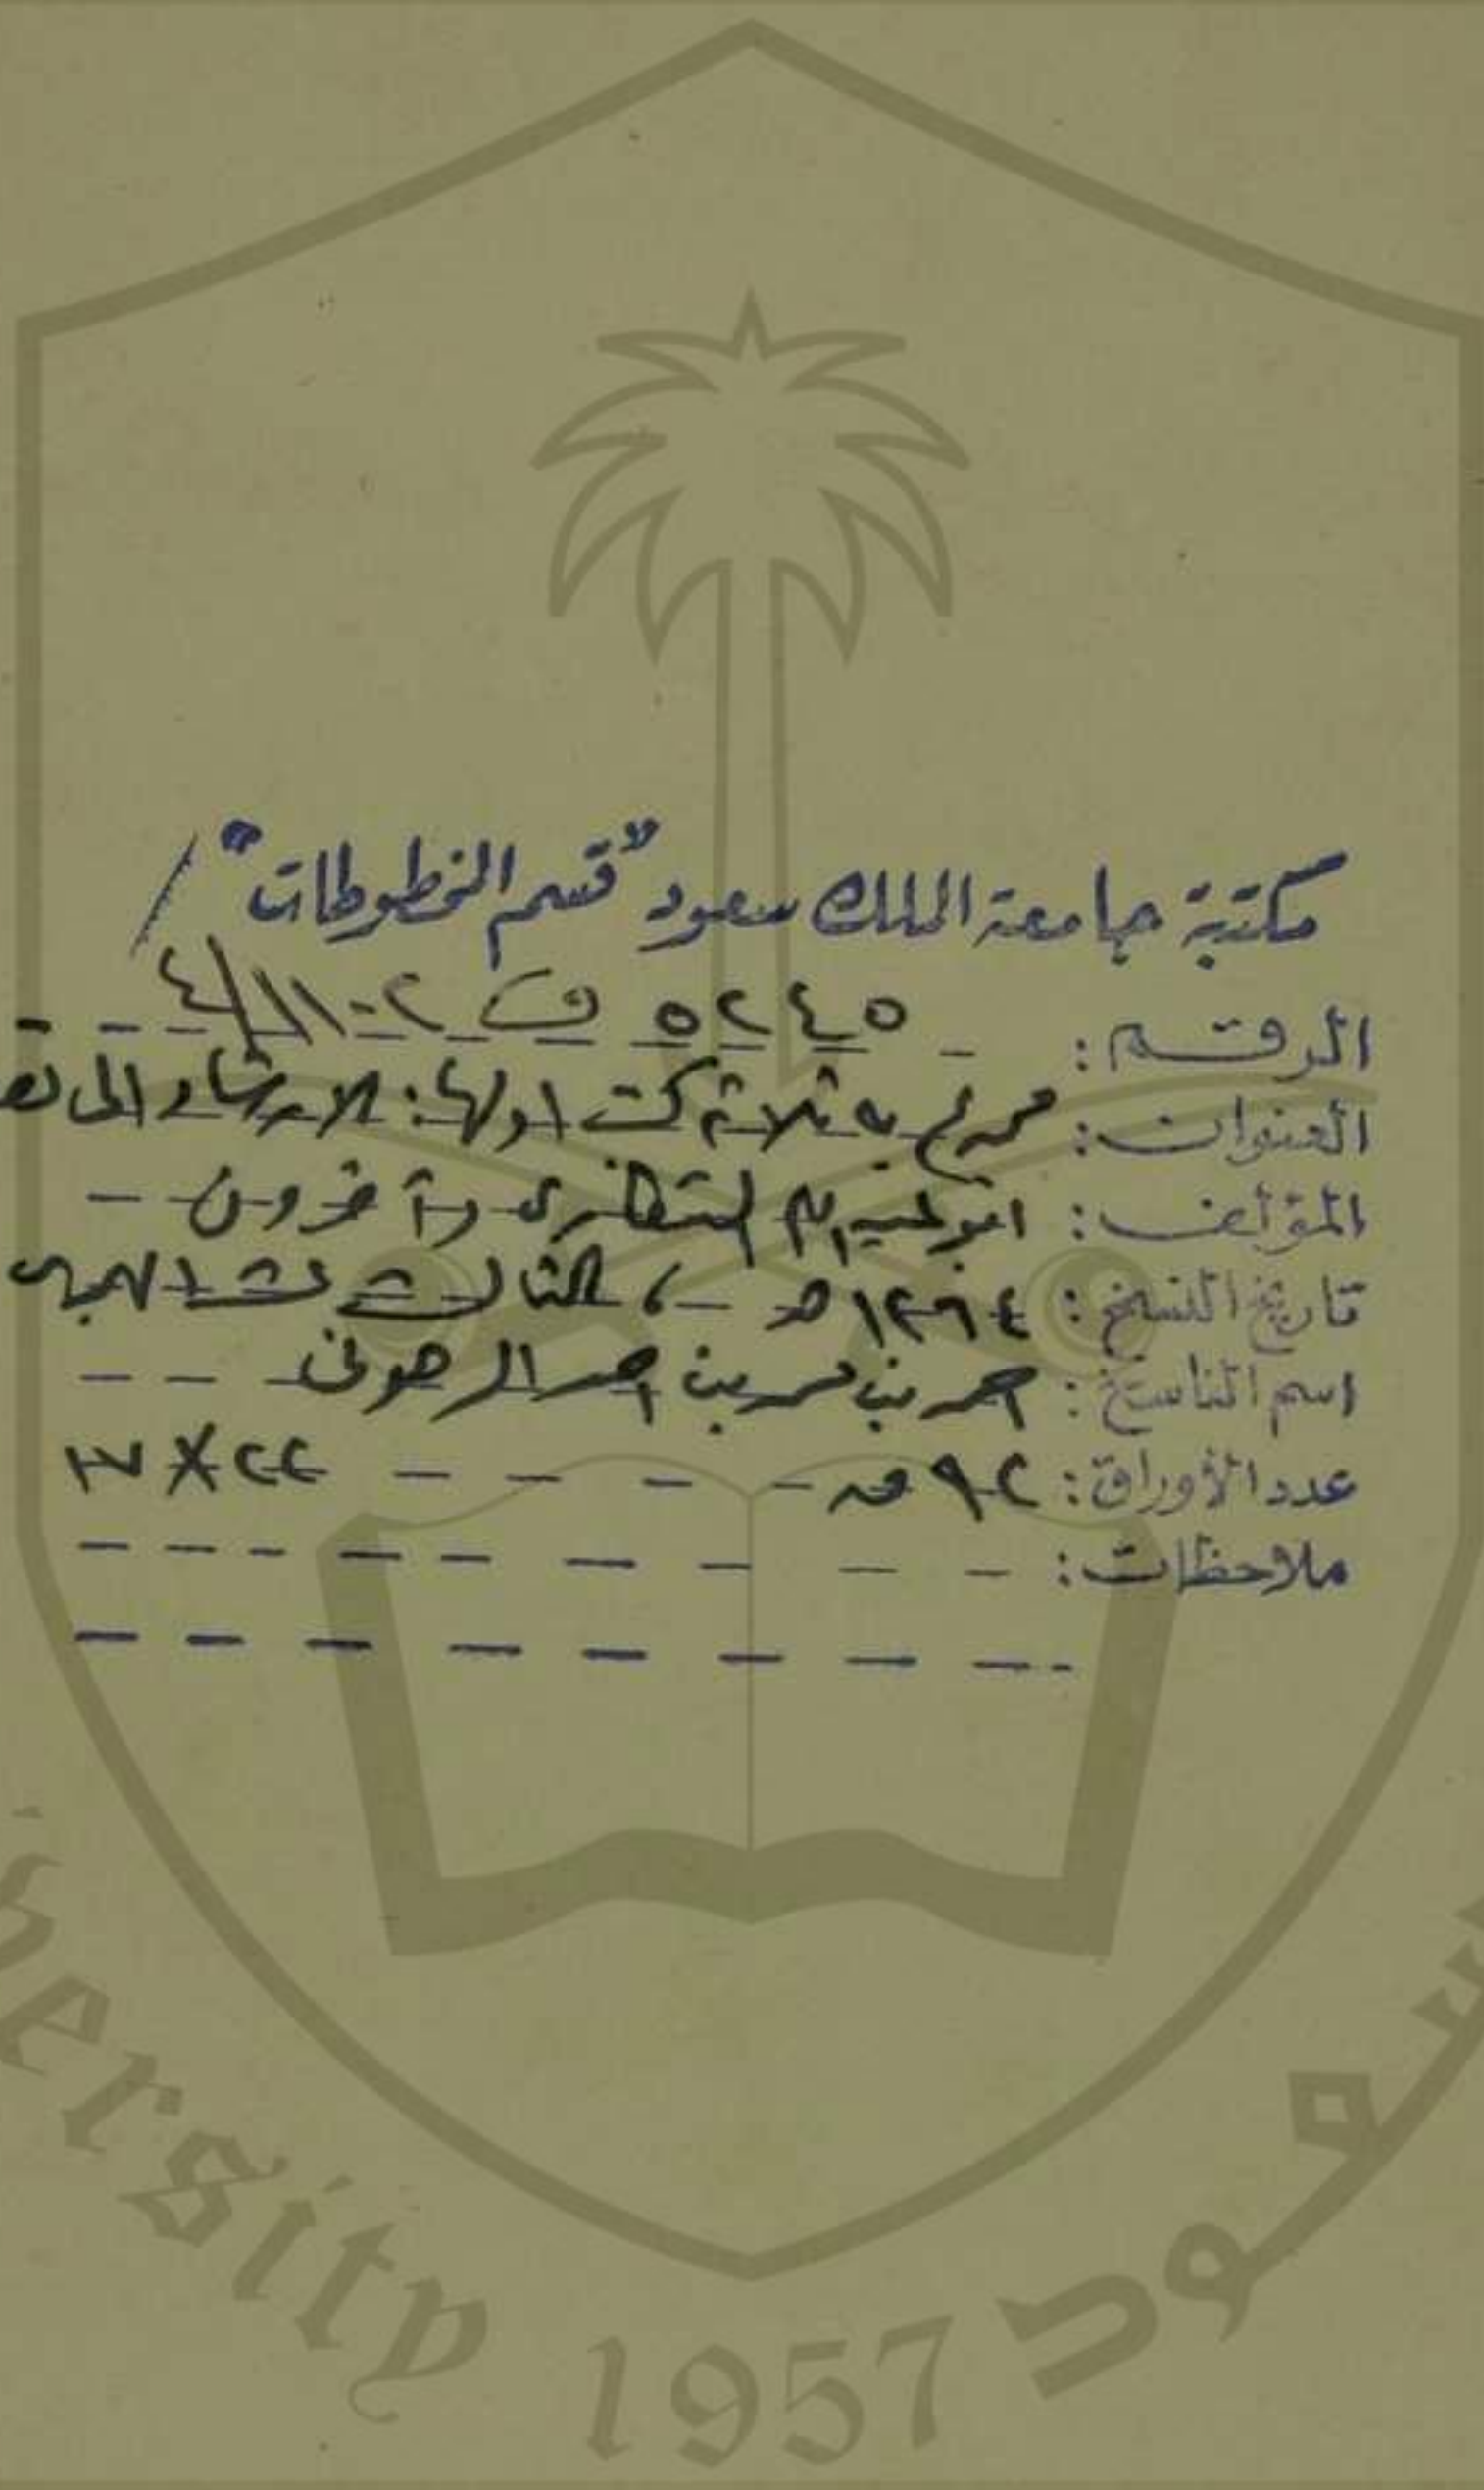 مكتبة جامعة الملك سعود "قسم المخطوطات"
الرقم: ٥٢٤٥ ف ٢٠١١/٤
العنوان: مجموع به ثلاثة كتب اولها: الارشاد الى
المؤلف: المنتظري وآخرون
تاريخ النسخ: ١٢٦٤ هـ، الثالث عشر الهجري
اسم الناسخ: احمد بن محمد بن احمد الرهوني
عدد الأوراق: ٩٢ ق ٢٢ X ١٧
ملاحظات:
ersity 1957 سعود